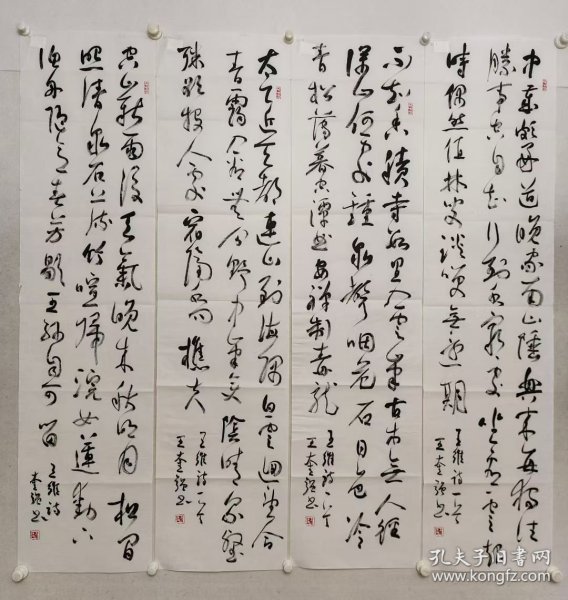 中岁颇好道晚家南山陲兴来每独往
胜事空自知行到水穷处坐看云起
时偶然值林叟谈笑无还期
王维诗一首
王奎强书
不知香积寺数里入云峰古木无人径
深山何处钟泉声咽危石日色冷
青松薄暮空潭曲安禅制毒龙
王维诗一首
王奎强书
太乙近天都连山到海隅白云回望合
青霭入看无分野中峰变阴晴众壑
殊欲投人处宿隔水问樵夫
王维诗一首
王奎强书
空山新雨后天气晚来秋明月松间
照清泉石上流竹喧归浣女莲动下
渔舟随意春芳歇王孙自可留
王维诗
奎强书
孔夫子旧书网
www.kongfz.com